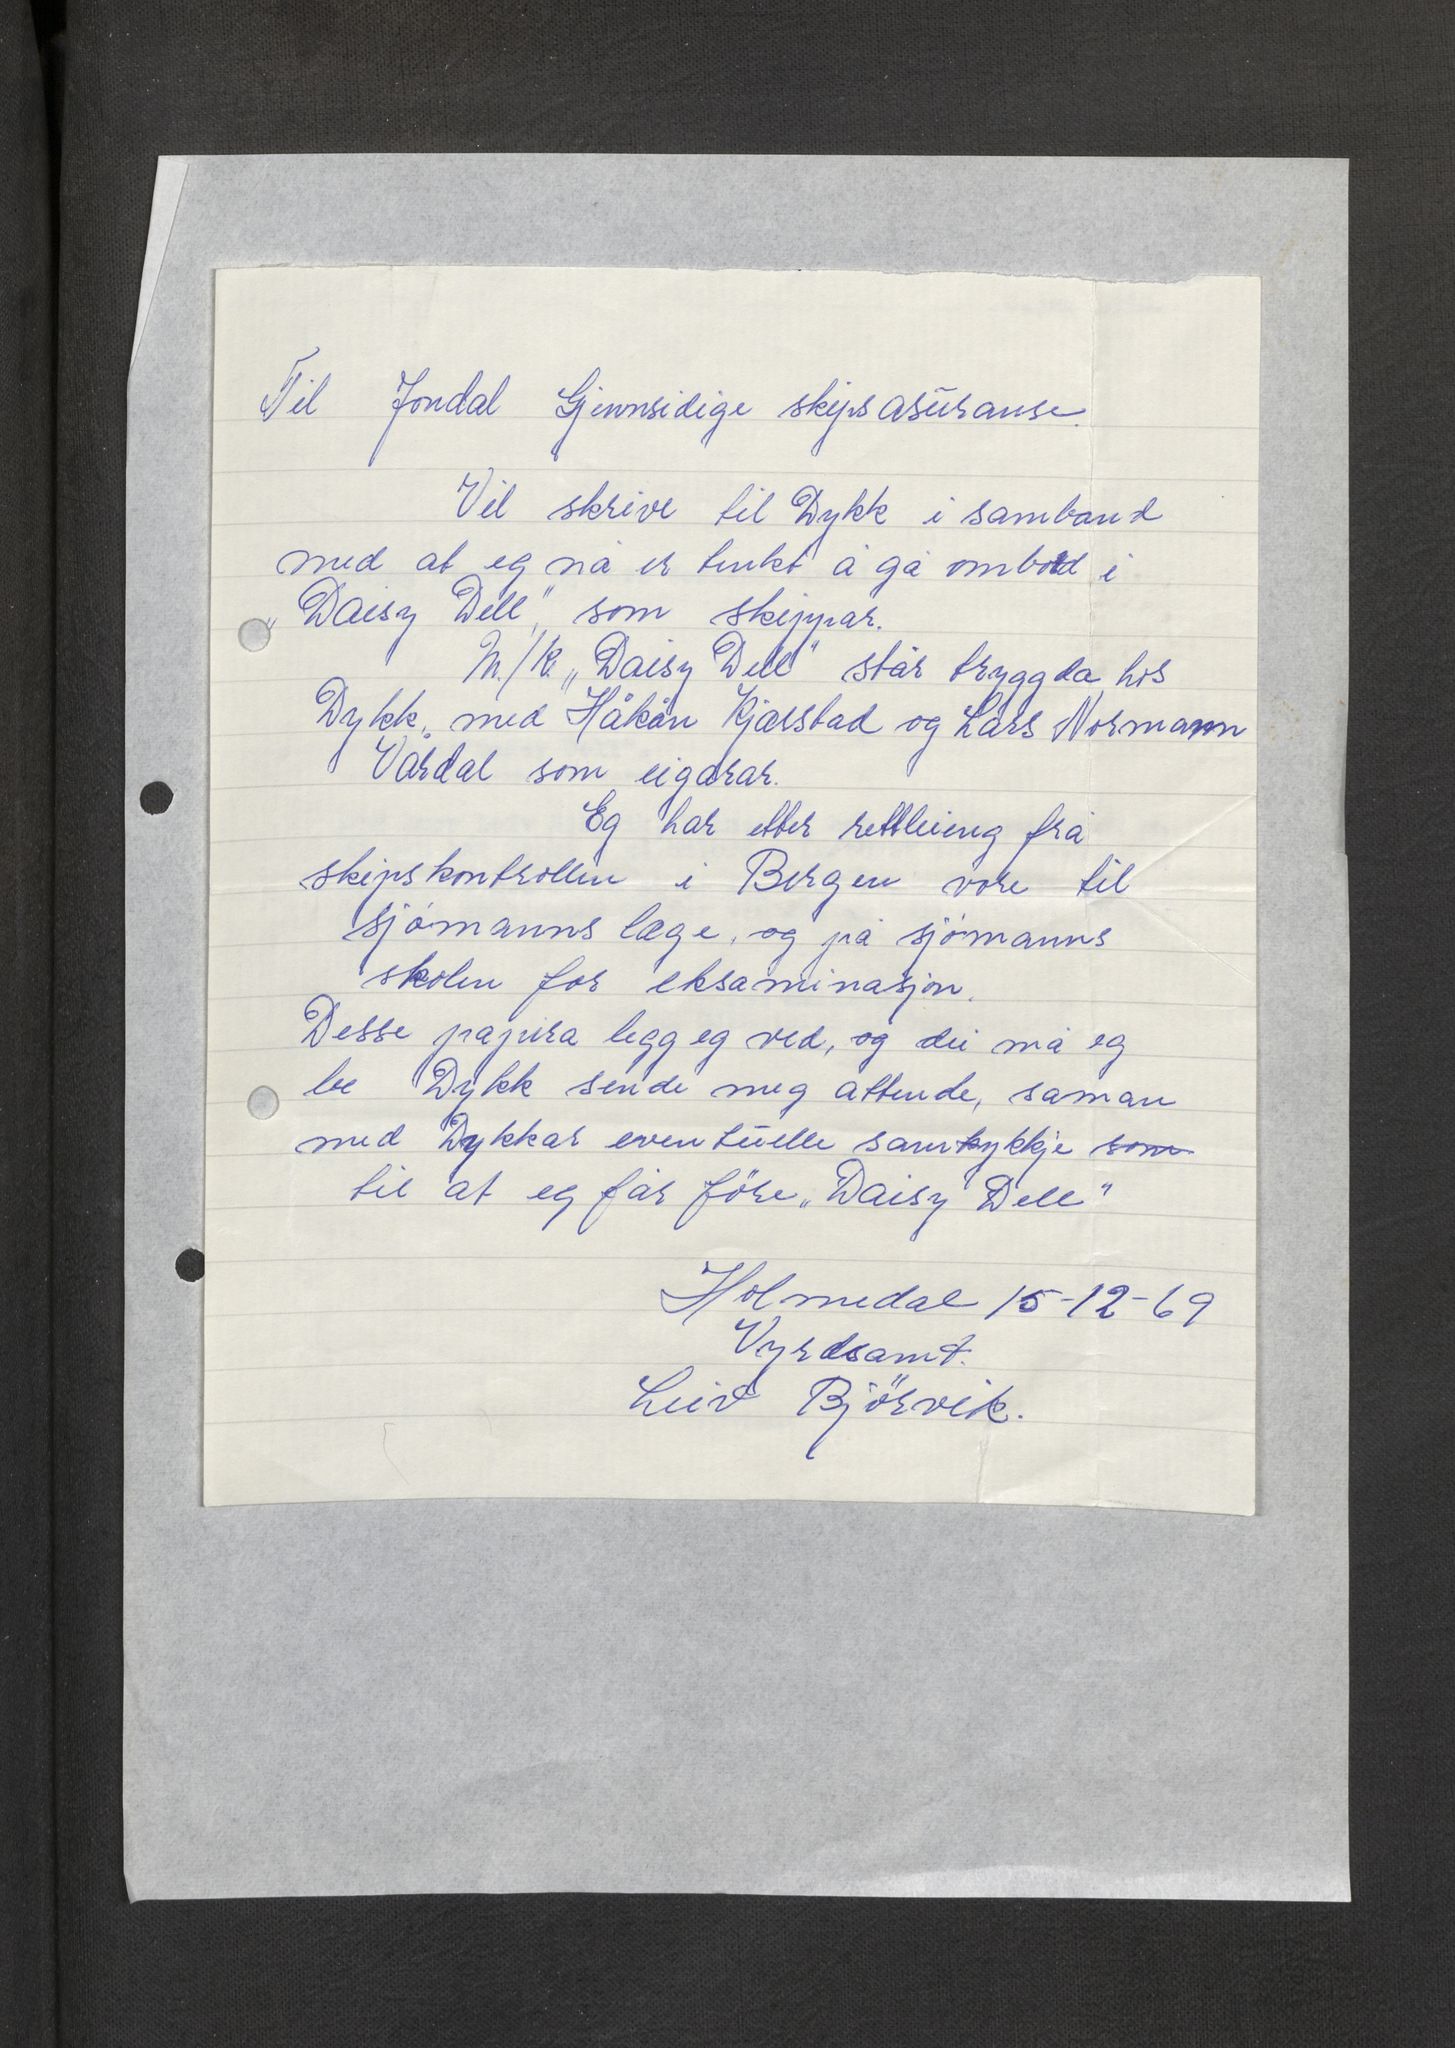 Til Jondal Gjennsidige skipsasuranse.
Vil skrive til Dykk i samband
med at eg nå er tenkt å gå ombord i
„Daisy Dell", som skippar.
M./K. „Daisy Dell" står tryggda hos
Dykk, med Håkån Kjærstad og Lars Normann
Vårdal som eigarar.
Eg har etter rettleieng frå
skipskontrollen i Bergen vore til
sjømanns læge, og på sjømanns
skolen for eksaminasjon.
Desse papira legg eg ved, og dei må eg
be Dykk sende meg attende, saman
med Dykkar eventuelle samtykkje som
til at eg får före „Daisy Dell"
Holmedal 15-12-69
Vyrdsamt.
Leiv Björvik.